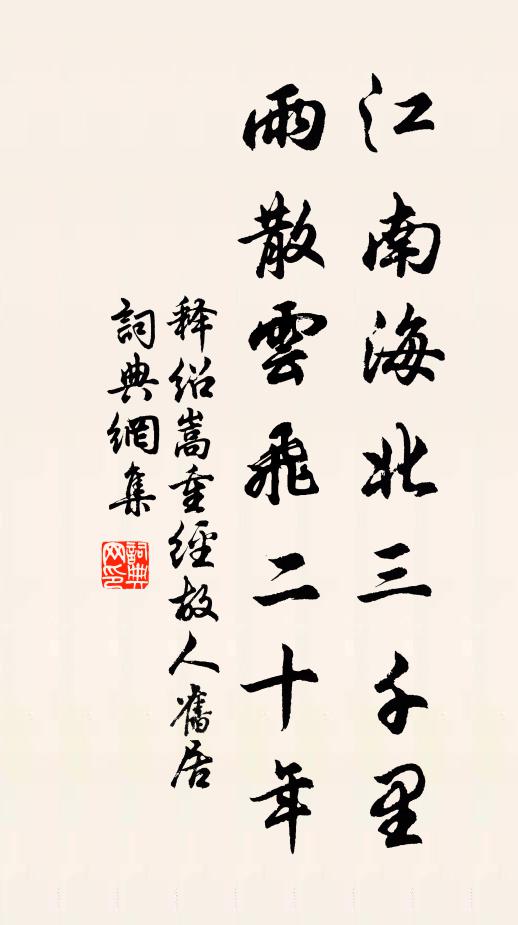 江南海北三千里
雨散雲飛二十年
释绍嵩重經故人舊居
詞典網集
詞典网印